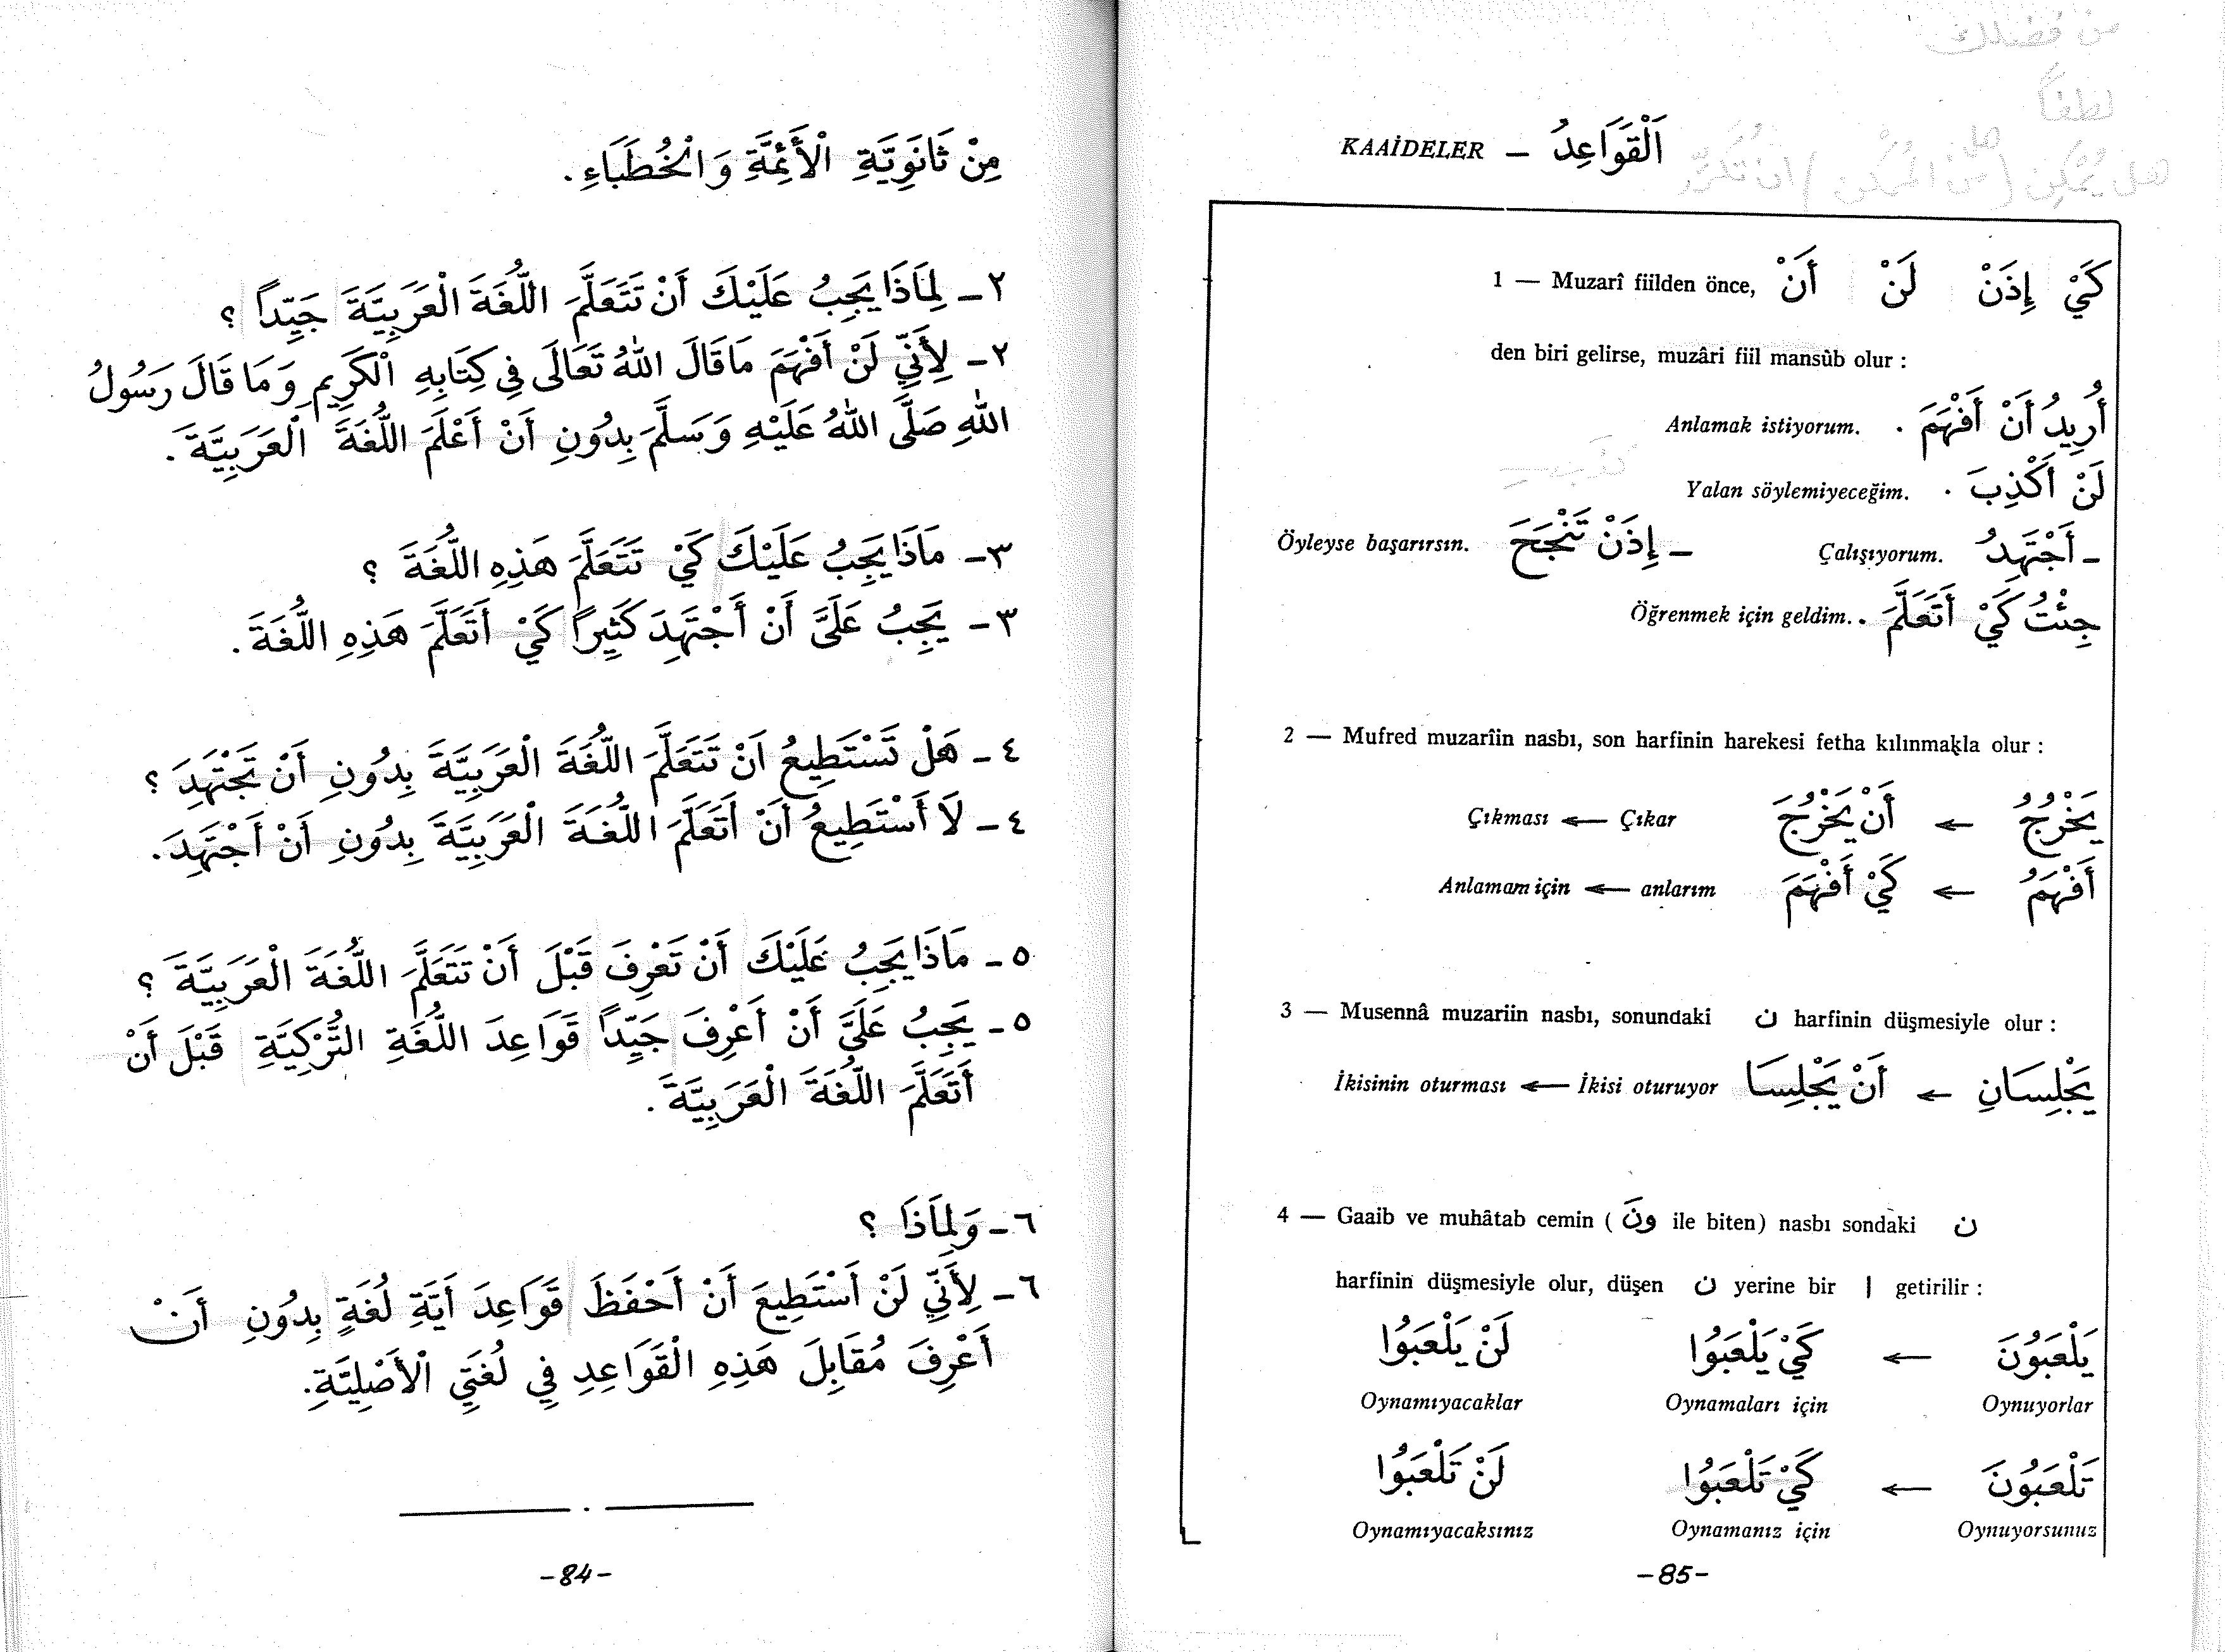 مِنْ ثَانَوِيَّةِ الْأَئِمَّةِ وَالْخُطَبَاءِ.
٢ـ لِمَاذَا يَجِبُ عَلَيْكَ أَنْ تَتَعَلَّمَ اللُّغَةَ الْعَرَبِيَّةَ جَيِّداً ؟
٢ـ لِأَنِّي لَنْ أَفْهَمَ مَا قَالَ اللهُ تَعَالَى فِي كِتَابِهِ الْكَرِيمِ وَمَا قَالَ رَسُولُ
اللهِ صَلَّى اللهُ عَلَيْهِ وَسَلَّمَ بِدُونِ أَنْ أَعْلَمَ اللُّغَةَ الْعَرَبِيَّةَ.
٣ـ مَاذَا يَجِبُ عَلَيْكَ كَيْ تَتَعَلَّمَ هَذِهِ اللُّغَةَ ؟
٣ـ يَجِبُ عَلَيَّ أَنْ أَجْتَهِدَ كَثِيراً كَيْ أَتَعَلَّمَ هَذِهِ اللُّغَةَ.
٤ـ هَلْ تَسْتَطِيعُ اَنْ تَتَعَلَّمَ اللُّغَةَ الْعَرَبِيَّةَ بِدُونِ أَنْ تَجْتَهِدَ ؟
٤ـ لَا أَسْتَطِيعُ أَنْ أَتَعَلَّمَ اللُّغَةَ الْعَرَبِيَّةَ بِدُونِ أَنْ أَجْتَهِدَ.
٥ـ مَاذَا يَجِبُ عَلَيْكَ أَنْ تَعْرِفَ قَبْلَ أَنْ تَتَعَلَّمَ اللُّغَةَ الْعَرَبِيَّةَ ؟
٥ـ يَجِبُ عَلَيَّ أَنْ أَعْرِفَ جَيِّداً قَوَاعِدَ اللُّغَةِ التُّرْكِيَّةِ قَبْلَ أَنْ
أَتَعَلَّمَ اللُّغَةَ الْعَرَبِيَّةَ.
٦ـ وَلِمَاذَا ؟
٦ـ لِأَنِّي لَنْ اَسْتَطِيعَ أَنْ أَحْفَظَ قَوَاعِدَ اَيَّةِ لُغَةٍ بِدُونِ أَنْ
اَعْرِفَ مُقَابِلَ هَذِهِ الْقَوَاعِدِ فِي لُغَتِي الْأَصْلِيَّةِ.
-84-
من فضلك
لطفاً
KAAİDELER – اَلْقَوَاعِدُ
1 — Muzarî fiilden önce, أَنْ لَنْ إِذَنْ كَيْ
den biri gelirse, muzâri fiil mansûb olur :
أُرِيدُ أَنْ أَفْهَمَ . Anlamak istiyorum.
لَنْ اَكْذِبَ . Yalan söylemiyeceğim.
ـ أَجْتَهِدُ Çalışıyorum. ـ إِذَنْ تَنْجَحَ Öyleyse başarırsın.
جِئْتُ كَيْ أَتَعَلَّمَ . Öğrenmek için geldim.
2 — Mufred muzarîin nasbı, son harfinin harekesi fetha kılınmakla olur :
يَخْرُجُ ← أَنْ يَخْرُجَ Çıkması ← Çıkar
أَفْهَمُ ← كَيْ أَفْهَمَ Anlamam için ← anlarım
3 — Musennâ muzariin nasbı, sonundaki ن harfinin düşmesiyle olur :
يَجْلِسَانِ ← أَنْ يَجْلِسَا İkisinin oturması ← İkisi oturuyor
4 — Gaaib ve muhâtab cemin ( ونَ ile biten) nasbı sondaki ن
harfinin düşmesiyle olur, düşen ن yerine bir ا getirilir :
يَلْعَبُونَ ← كَيْ يَلْعَبُوا لَنْ يَلْعَبُوا
Oynamıyacaklar Oynamaları için Oynuyorlar
تَلْعَبُونَ ← كَيْ تَلْعَبُوا لَنْ تَلْعَبُوا
Oynamıyacaksınız Oynamanız için Oynuyorsunuz
-85-